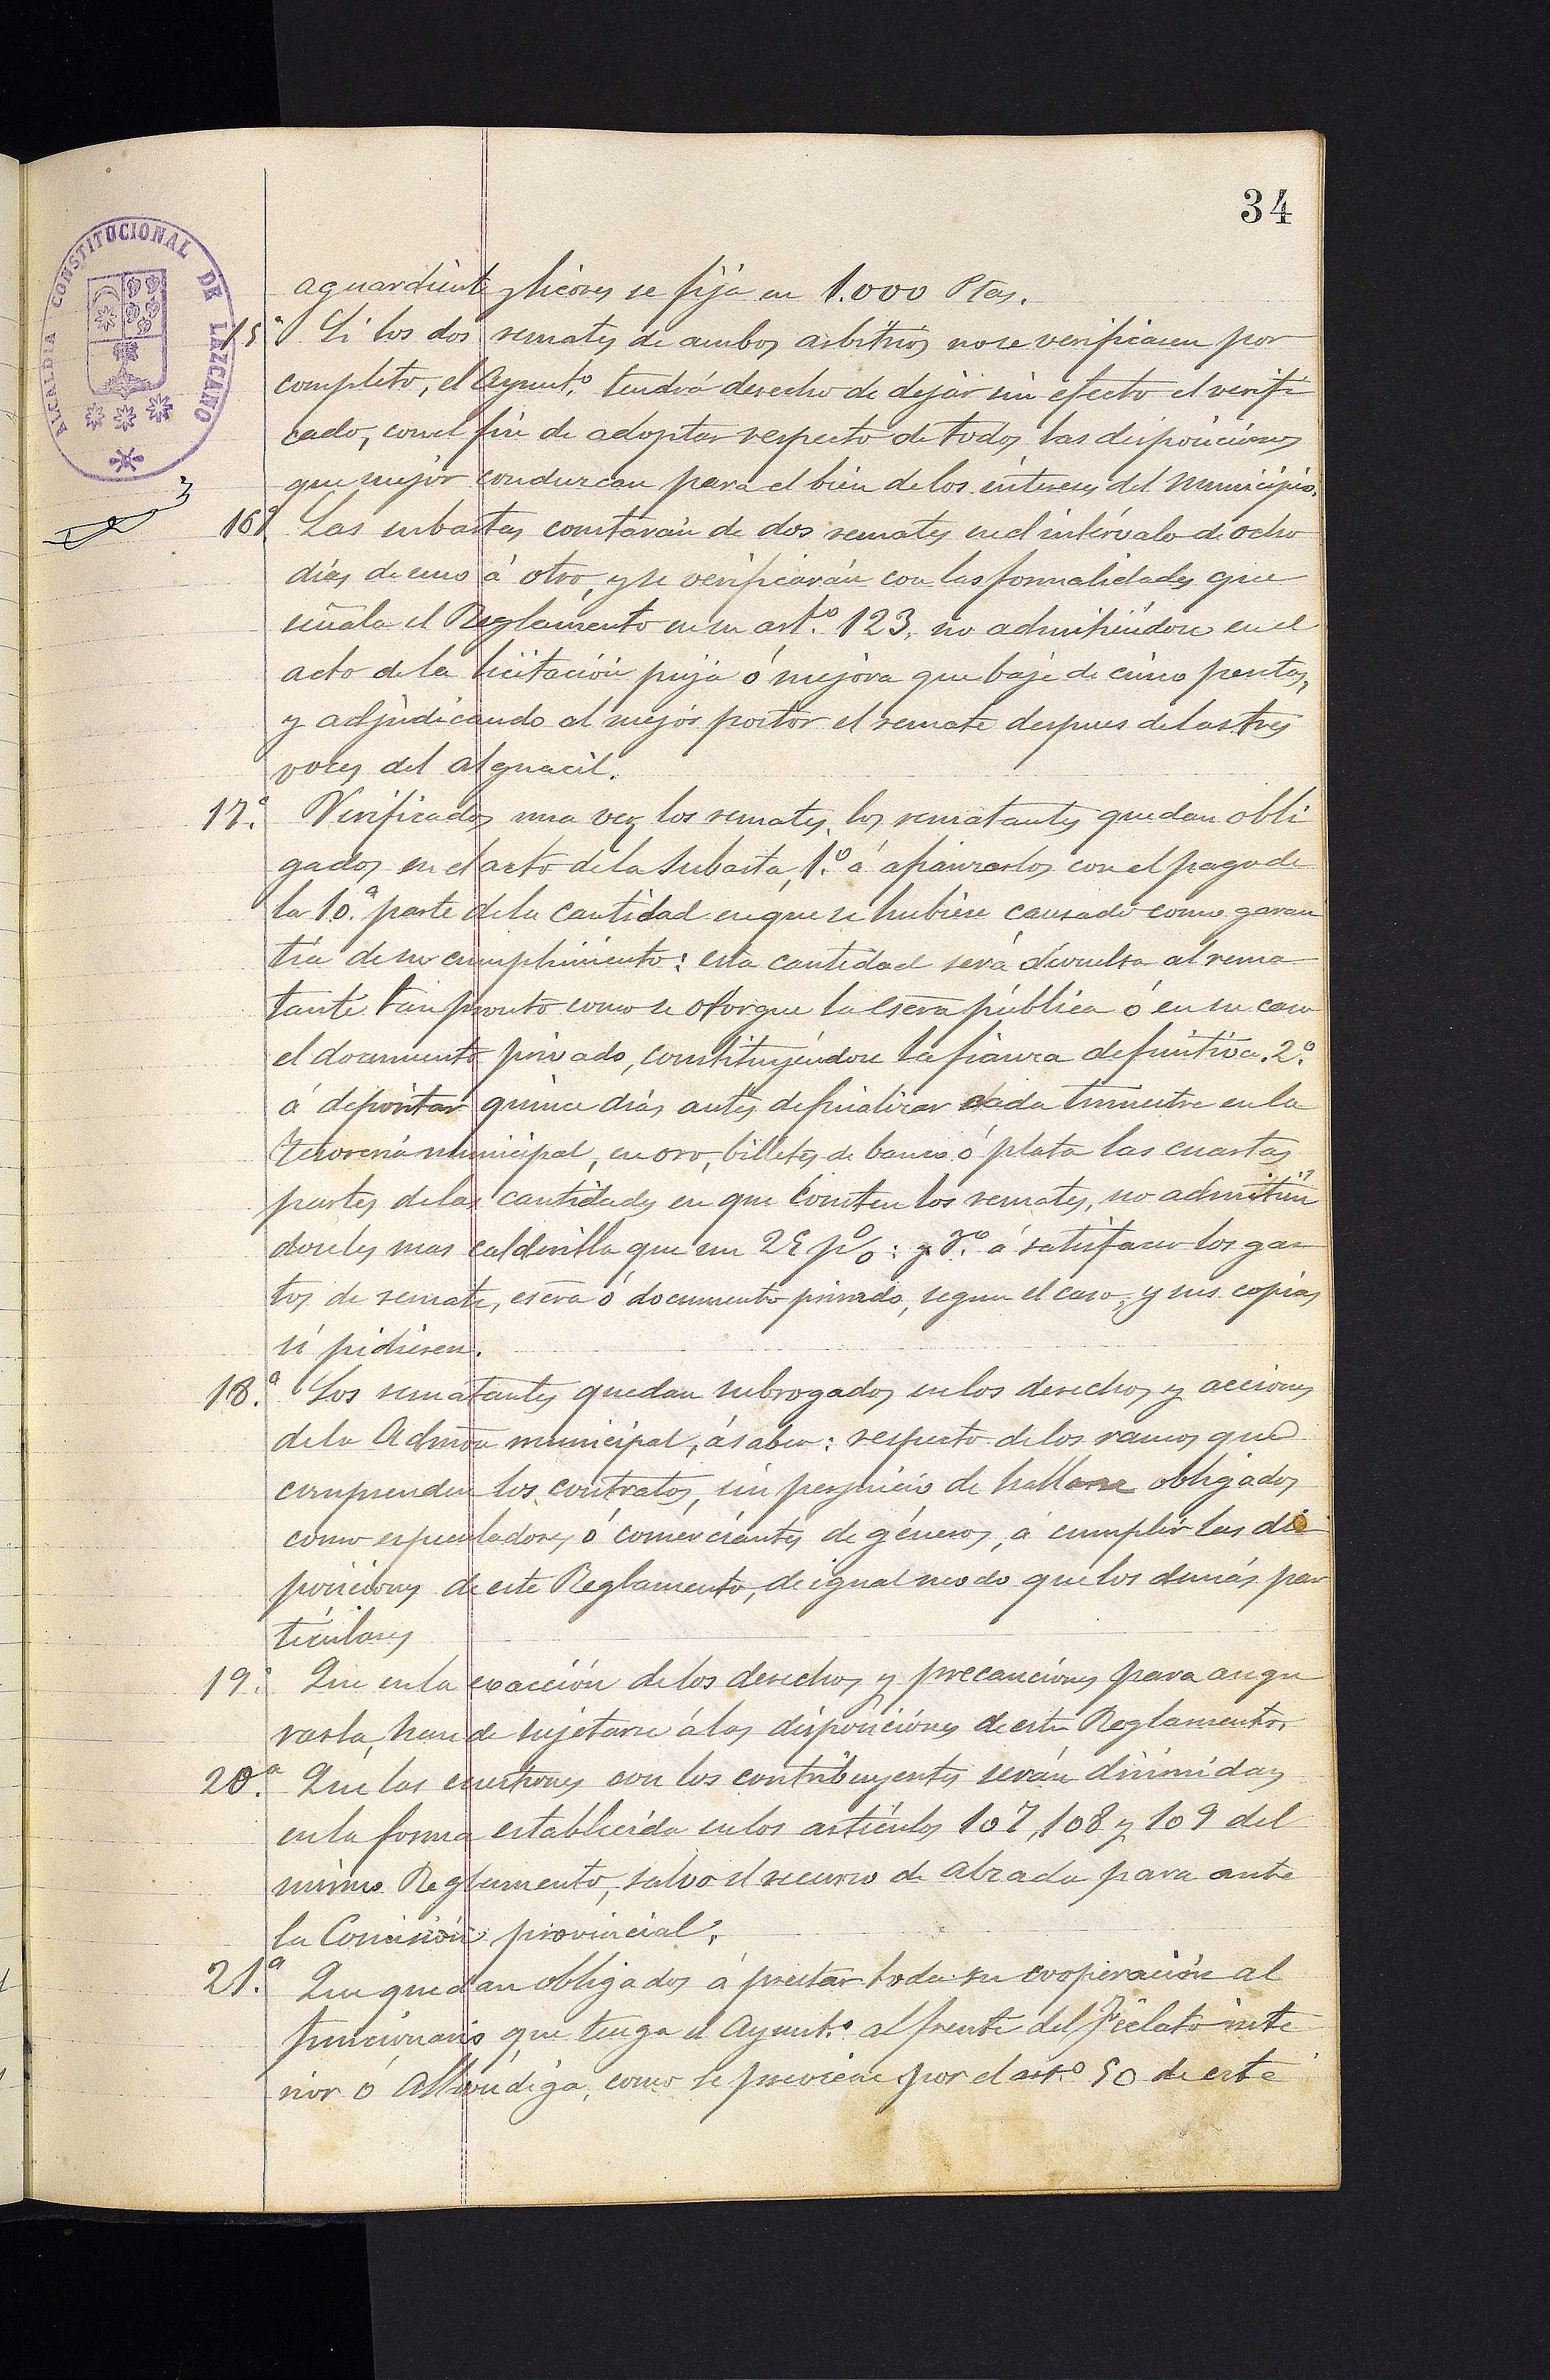 34
ALCALDIA CONSTITUCIONAL DE LAZCANO
aguardiente y licores se fija en 1.000 Ptas.
15ª Si los dos remates de ambos arbitrios no se verificasen por
completo, el Ayunt.º tendrá derecho de dejar sin efecto el verifi
cado, con el fin de adoptar respecto de todos, las disposiciones
que mejor conduzcan para el bien de los intereses del Municipio.
16ª Las subastas constarán de dos remates en el intérvalo de ocho
dias de uno á otro, y se verificarán con las formalidades que
señala el Reglamento en su art.º 123, no admitiéndose en el
acto de la licitación puja ó mejora que baje de cinco pesetas,
y adjudicando al mejor postor el remate despues de las tres
voces del alguacil.
17.ª Verificados una vez los remates, los rematantes quedan obli
gados en el acto de la subasta, 1.º á afianzarlos con el pago de
la 10.ª parte de la cantidad en que se hubiere causado como garan
tía de su cumplimiento: esta cantidad será devuelta al rema
tante tan pronto como se otorgue la escra pública ó en su caso
el documento privado, constituyéndose la fianza definitiva. 2.º
á depositar quince dias antes de finalizar cada trimestre en la
Tesorería municipal, en oro, billetes de banco ó plata las cuartas
partes de las cantidades en que consten los remates, no admitién
doseles mas calderilla que un 25 p%: y 3.º á satisfacer los gas
tos de remate, escra ó documento privado, segun el caso, y sus copias
si pidiesen.
18.ª Los rematantes quedan subrogados en los derechos y acciones
de la Admon municipal, á saber: respecto de los ramos que
comprenden los contratos, sin perjuicio de hallarse obligados
como especuladores ó comerciantes de géneros, á cumplir las dis
posiciones de este Reglamento, de igual modo que los demás par
ticulares
19.ª Que en la exacción de los derechos y precauciones para asegu
rarla, han de sujetarse á las disposiciones de este Reglamento.
20.ª Que las cuestiones con los contribuyentes serán dirimidas
en la forma establecida en los artículos 107, 108 y 109 del
mismo Reglamento, salvo el recurso de alzada para ante
la Comisión provincial.
21.ª Que quedan obligados á prestar toda su cooperación al
funcionario que tenga el Ayunt.º al frente del Fielato inte
rior ó Alhóndiga, como se previene por el art.º 50 de este